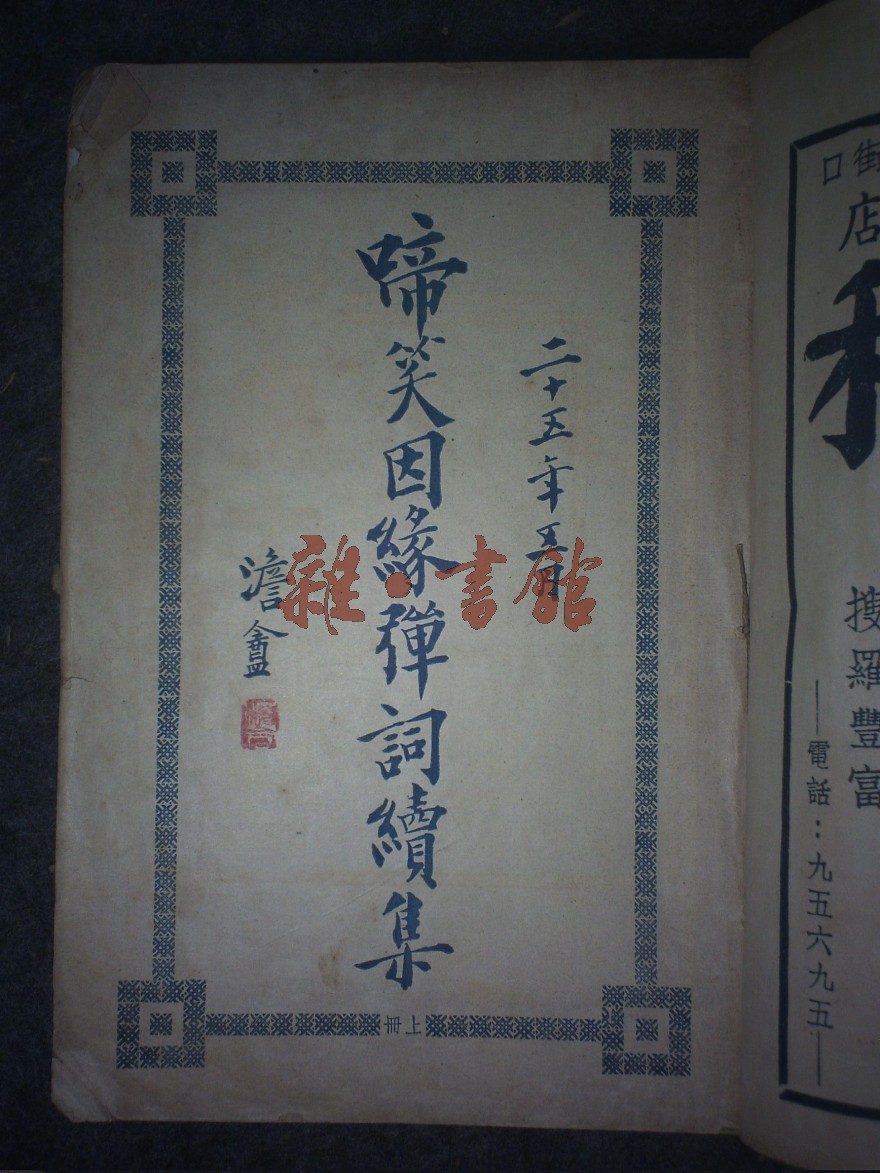 街口
店
搜羅豐富
電話：九五六九五
二十五年五月
啼笑因緣彈詞續集
澹盦
上冊
雜·書館